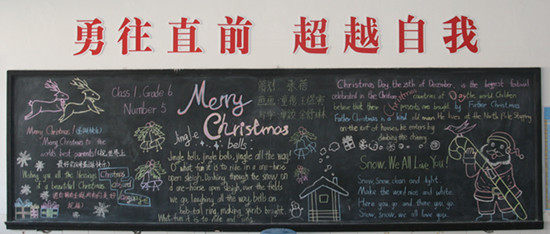 勇往直前 超越自我
Class 1, Grade 6
Number 5
Merry
Christmas
Merry Christmas!
Merry Christmas to the
world's best parents!
Wishing you all the blessings
of a beautiful Christmas
Christmas
Jingle
bells:
Jingle bells, jingle bells, jingle all the way!
O what fun it is to ride in a one-horse
open sleigh. Dashing through the snow, in
a one-horse open sleigh, over the fields
we go, laughing all the way, bells on
bob-tail ring, making spirits bright.
What fun it is to ride and sing
Christmas Day, the 25th of December, is the biggest festival
celebrated in the Christian countries of the world. Children
believe that their presents are bought by Father Christmas.
Father Christmas is a kind old man. He lives at the North Pole. Stopping
on the roof of houses, he enters by
climbing the chimney
Snow, We All Love You!
Snow, Snow, clean and light.
Make the word nice and white.
Here you go and there you go.
Snow, snow, we all love you.